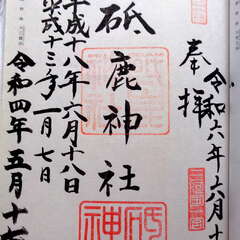 令和六年六月十
奉拝
三河國一宮
砥鹿神社
平成十八年六月十八日
平成十三年一月七日
令和四年五月十七